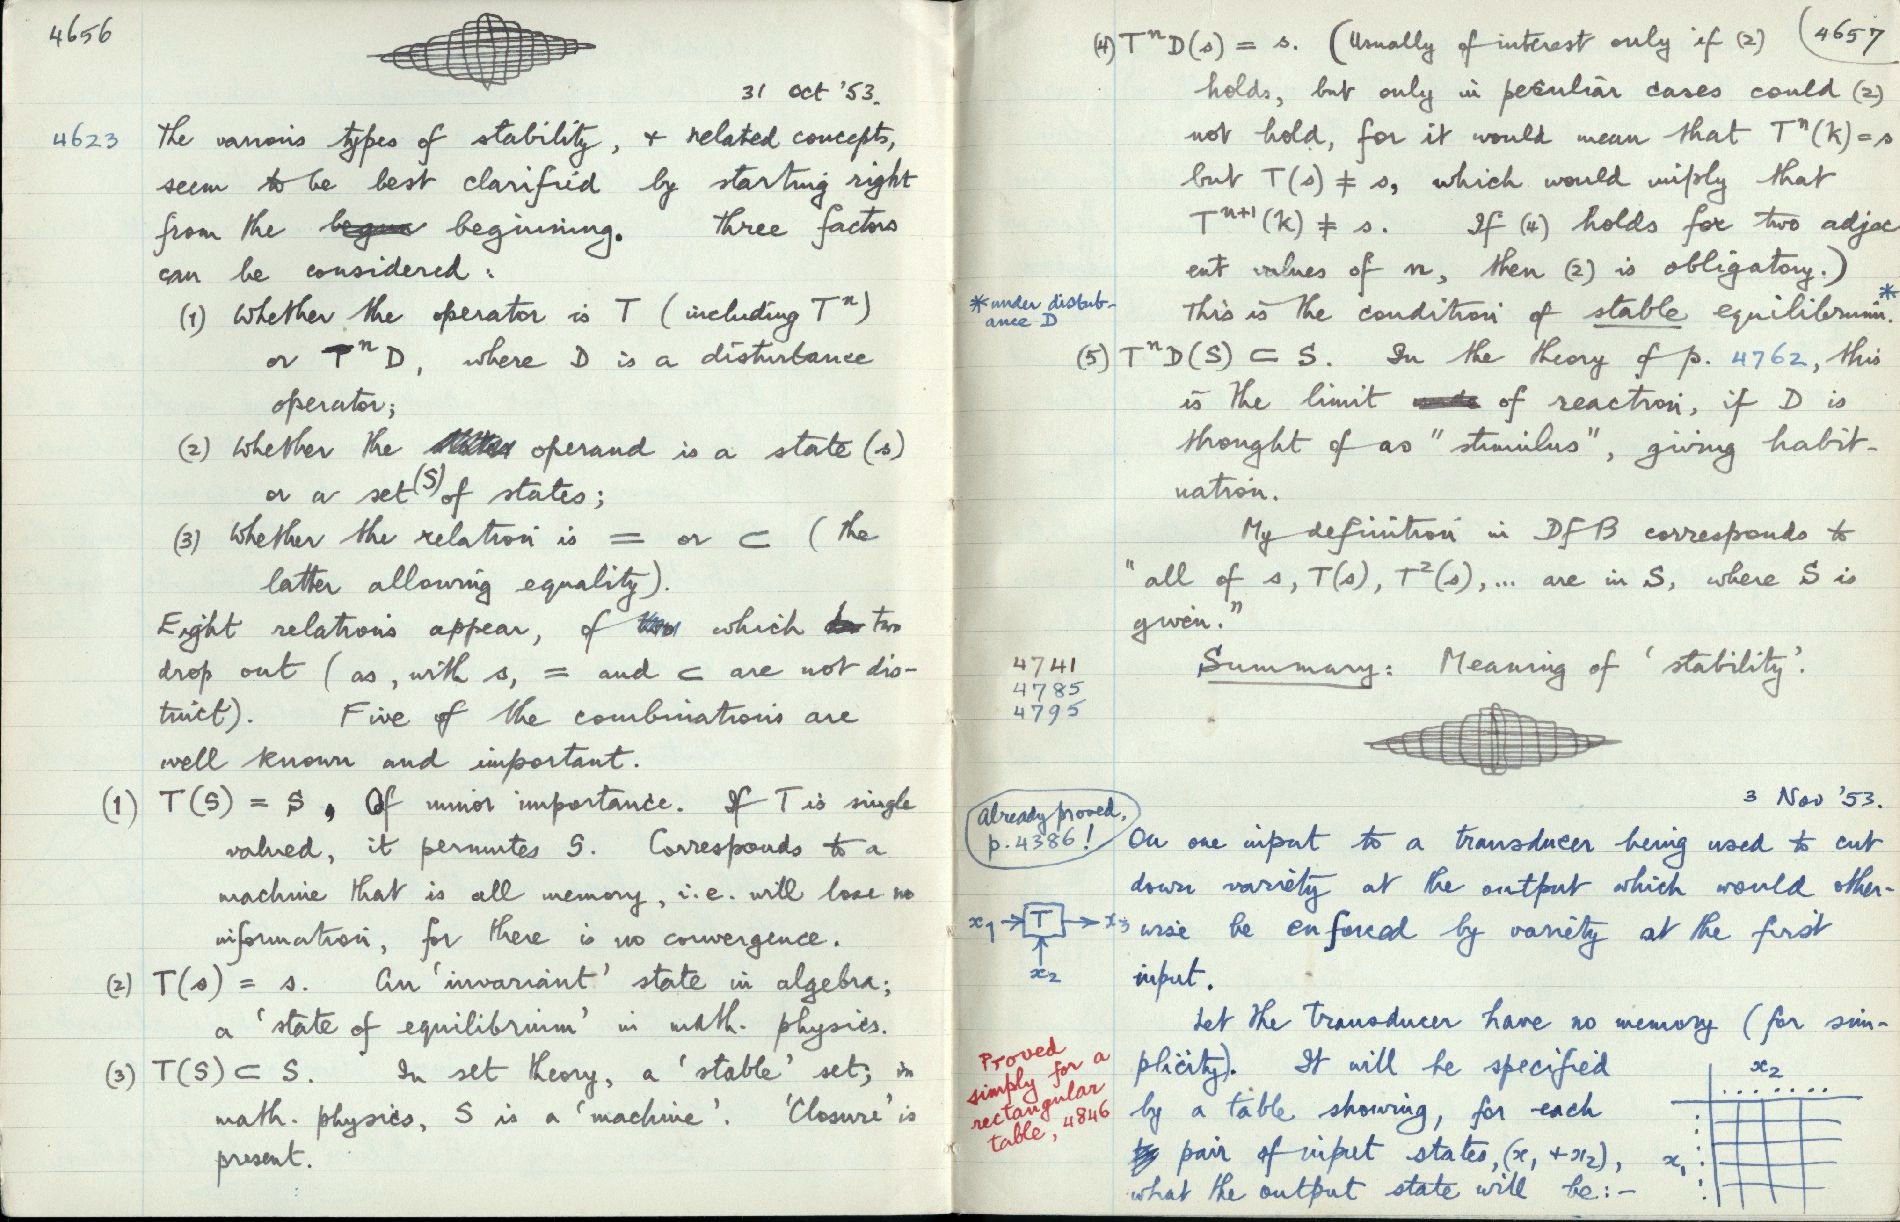 4656
31 Oct '53.
4623
The various types of stability, + related concepts,
seem to be best clarified by starting right
from the begun beginning. Three factors
can be considered:
(1) Whether the operator is T (including Tⁿ)
or TⁿD, where D is a disturbance
operator;
(2) Whether the operand is a state (s)
or a set (S) of states;
(3) Whether the relation is = or ⊂ (the
latter allowing equality).
Eight relations appear, of which two
drop out (as, with s, = and ⊂ are not dis-
tinct). Five of the combinations are
well known and important.
(1) T(S) = S, Of minor importance. If T is single
valued, it permutes S. Corresponds to a
machine that is all memory, i.e. will lose no
information, for there is no convergence.
(2) T(s) = s. An 'invariant' state in algebra;
a 'state of equilibrium' in math. physics.
(3) T(S) ⊂ S. In set theory, a 'stable' set; in
math. physics, S is a 'machine'. 'Closure' is
present.
4657
(4) TⁿD(s) = s. (Usually of interest only if (2)
holds, but only in peculiar cases could (2)
not hold, for it would mean that Tⁿ(k) = s
but T(s) ≠ s, which would imply that
Tⁿ⁺¹(k) ≠ s. If (4) holds for two adjac
ent values of n, then (2) is obligatory.)
This is the condition of stable equilibrium.*
* under disturb-
ance D
(5) TⁿD(S) ⊂ S. In the theory of p. 4762, this
is the limit of reaction, if D is
thought of as "stimulus", giving habit-
uation.
My definition in DfB corresponds to
"all of s, T(s), T²(s), ... are in S, where S is
given."
Summary: Meaning of 'stability'.
4741
4785
4795
3 Nov '53.
Already proved,
p. 4386!
On one input to a transducer being used to cut
down variety at the output which would other-
wise be enforced by variety at the first
input.
x₁ → T → x₃
x₂
Let the transducer have no memory (for sim-
plicity). It will be specified
by a table showing, for each
pair of input states, (x₁ + x₂),
what the output state will be:-
Proved
simply for a
rectangular
table, 4846
x₂
x₁